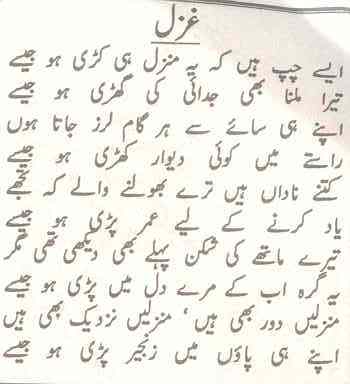 غزل
ایسے چپ ہیں کہ یہ منزل ہی کڑی ہو جیسے
تیرا ملنا بھی جدائی کی گھڑی ہو جیسے
اپنے ہی سائے سے ہر گام لرز جاتا ہوں
راستے میں کوئی دیوار کھڑی ہو جیسے
کتنے ناداں ہیں ترے بھولنے والے کہ تجھے
یاد کرنے کے لیے عمر پڑی ہو جیسے
تیرے ماتھے کی شکن پہلے بھی دیکھی تھی مگر
یہ گرہ اب کے مرے دل میں پڑی ہو جیسے
منزلیں دور بھی ہیں ' منزلیں نزدیک بھی ہیں
اپنے ہی پاؤں میں زنجیر پڑی ہو جیسے